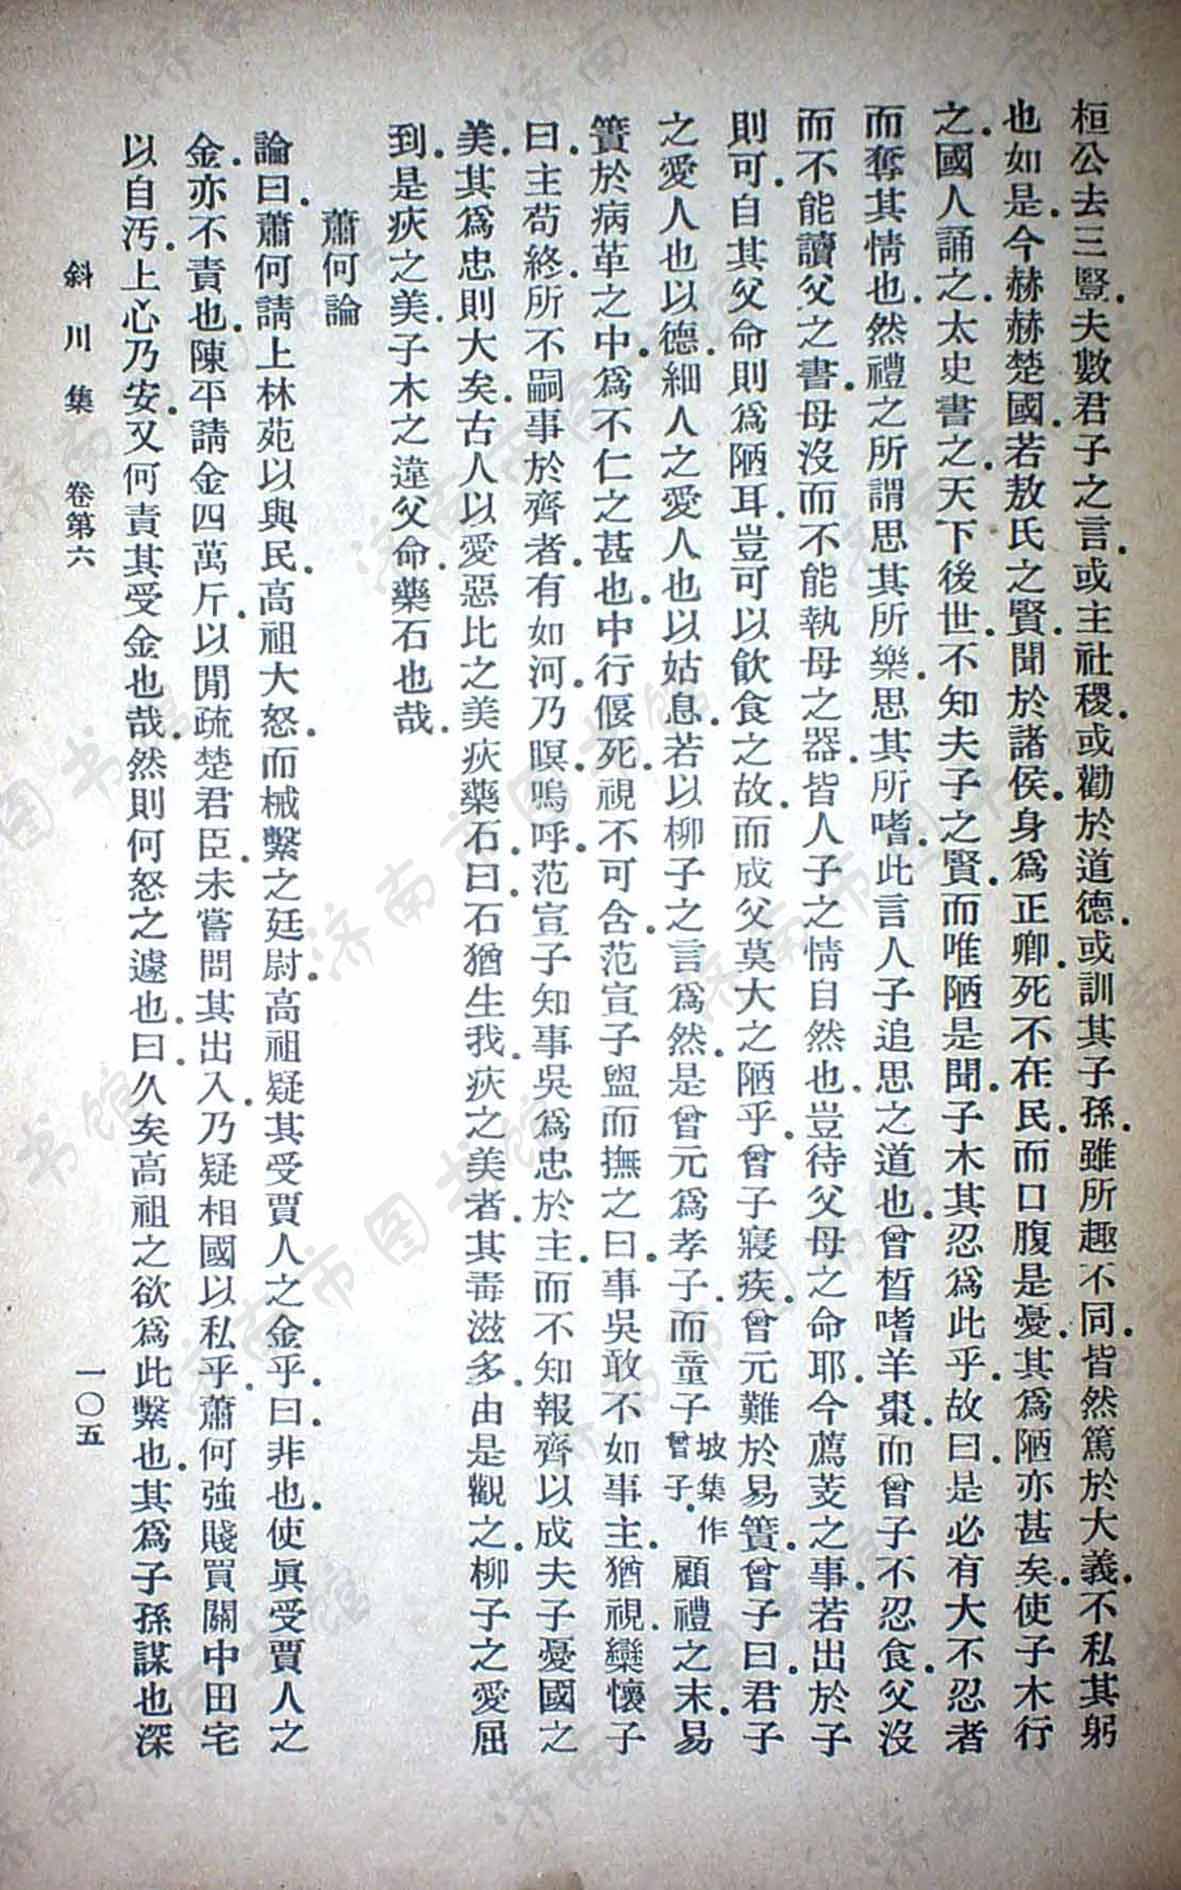 桓公去三豎.夫數君子之言.或主社稷.或勸於道德.或訓其子孫.雖所趣不同.皆然篤於大義.不私其躬
也如是.今赫赫楚國.若敖氏之賢.聞於諸侯.身爲正卿.死不在民.而口腹是憂.其爲陋亦甚矣.使子木行
之.國人誦之.太史書之.天下後世.不知夫子之賢.而唯陋是聞.子木其忍爲此乎.故曰.是必有大不忍者
而奪其情也.然禮之所謂思其所樂.思其所嗜.此言人子追思之道也.曾皙嗜羊棗.而曾子不忍食.父沒
而不能讀父之書.母沒而不能執母之器.皆人子之情自然也.豈待父母之命耶.今薦芰之事.若出於子
則可.自其父命則爲陋耳.豈可以飲食之故.而成父莫大之陋乎.曾子寢疾.曾元難於易簀.曾子曰.君子
之愛人也以德.細人之愛人也以姑息.若以柳子之言爲然.是曾元爲孝子.而童子 坡集作曾子. 顧禮之末.易
簀於病革之中.爲不仁之甚也.中行偃死.視不可含.范宣子盥而撫之曰.事吳敢不如事主.猶視.欒懷子
曰.主苟終.所不嗣事於齊者.有如河.乃瞑.嗚呼.范宣子知事吳爲忠於主.而不知報齊以成夫子憂國之
美.其爲忠則大矣.古人以愛惡比之美疢藥石.曰.石猶生我.疢之美者.其毒滋多.由是觀之.柳子之愛屈
到.是疢之美.子木之違父命.藥石也哉.
蕭何論
論曰.蕭何請上林苑以與民.高祖大怒.而械繫之廷尉.高祖疑其受賈人之金乎.曰.非也.使眞受賈人之
金.亦不責也.陳平請金四萬斤.以閒疏楚君臣.未嘗問其出入.乃疑相國以私乎.蕭何強賤買關中田宅
以自汚.上心乃安.又何責其受金也哉.然則何怒之遽也.曰.久矣高祖之欲爲此繫也.其爲子孫謀也深
斜川集 卷第六 一〇五
济南市图书馆